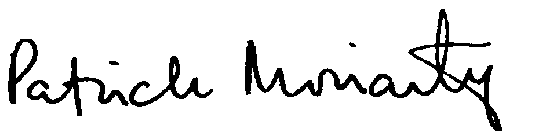 Patrick Moriarty